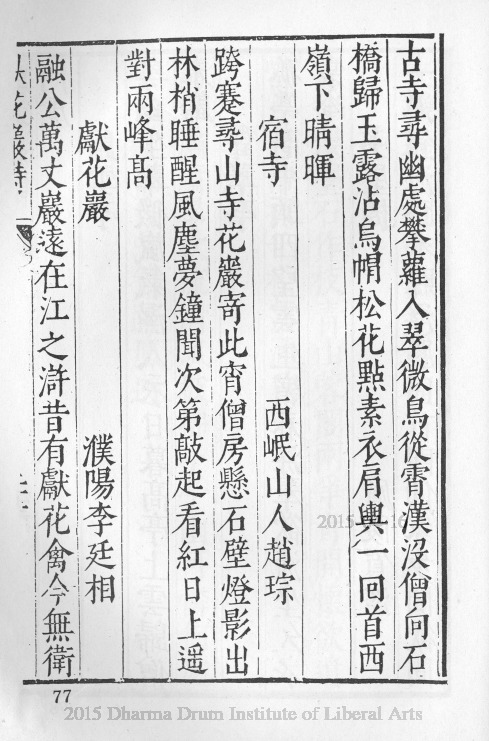 古寺尋幽處攀蘿入翠微鳥從霄漢没僧向石
橋歸玉露沾烏帽松花點素衣肩輿一回首西
嶺下晴暉
宿寺
西岷山人趙琮
跨蹇尋山寺花巖寄此宵僧房懸石壁燈影出
林梢睡醒風塵夢鐘聞次第敲起看紅日上遥
對兩峰髙
獻花巖
濮陽李廷相
融公萬丈巖遠在江之滸昔有獻花禽今無衛
花巖詩
77
2015 Dharma Drum Institute of Liberal Arts